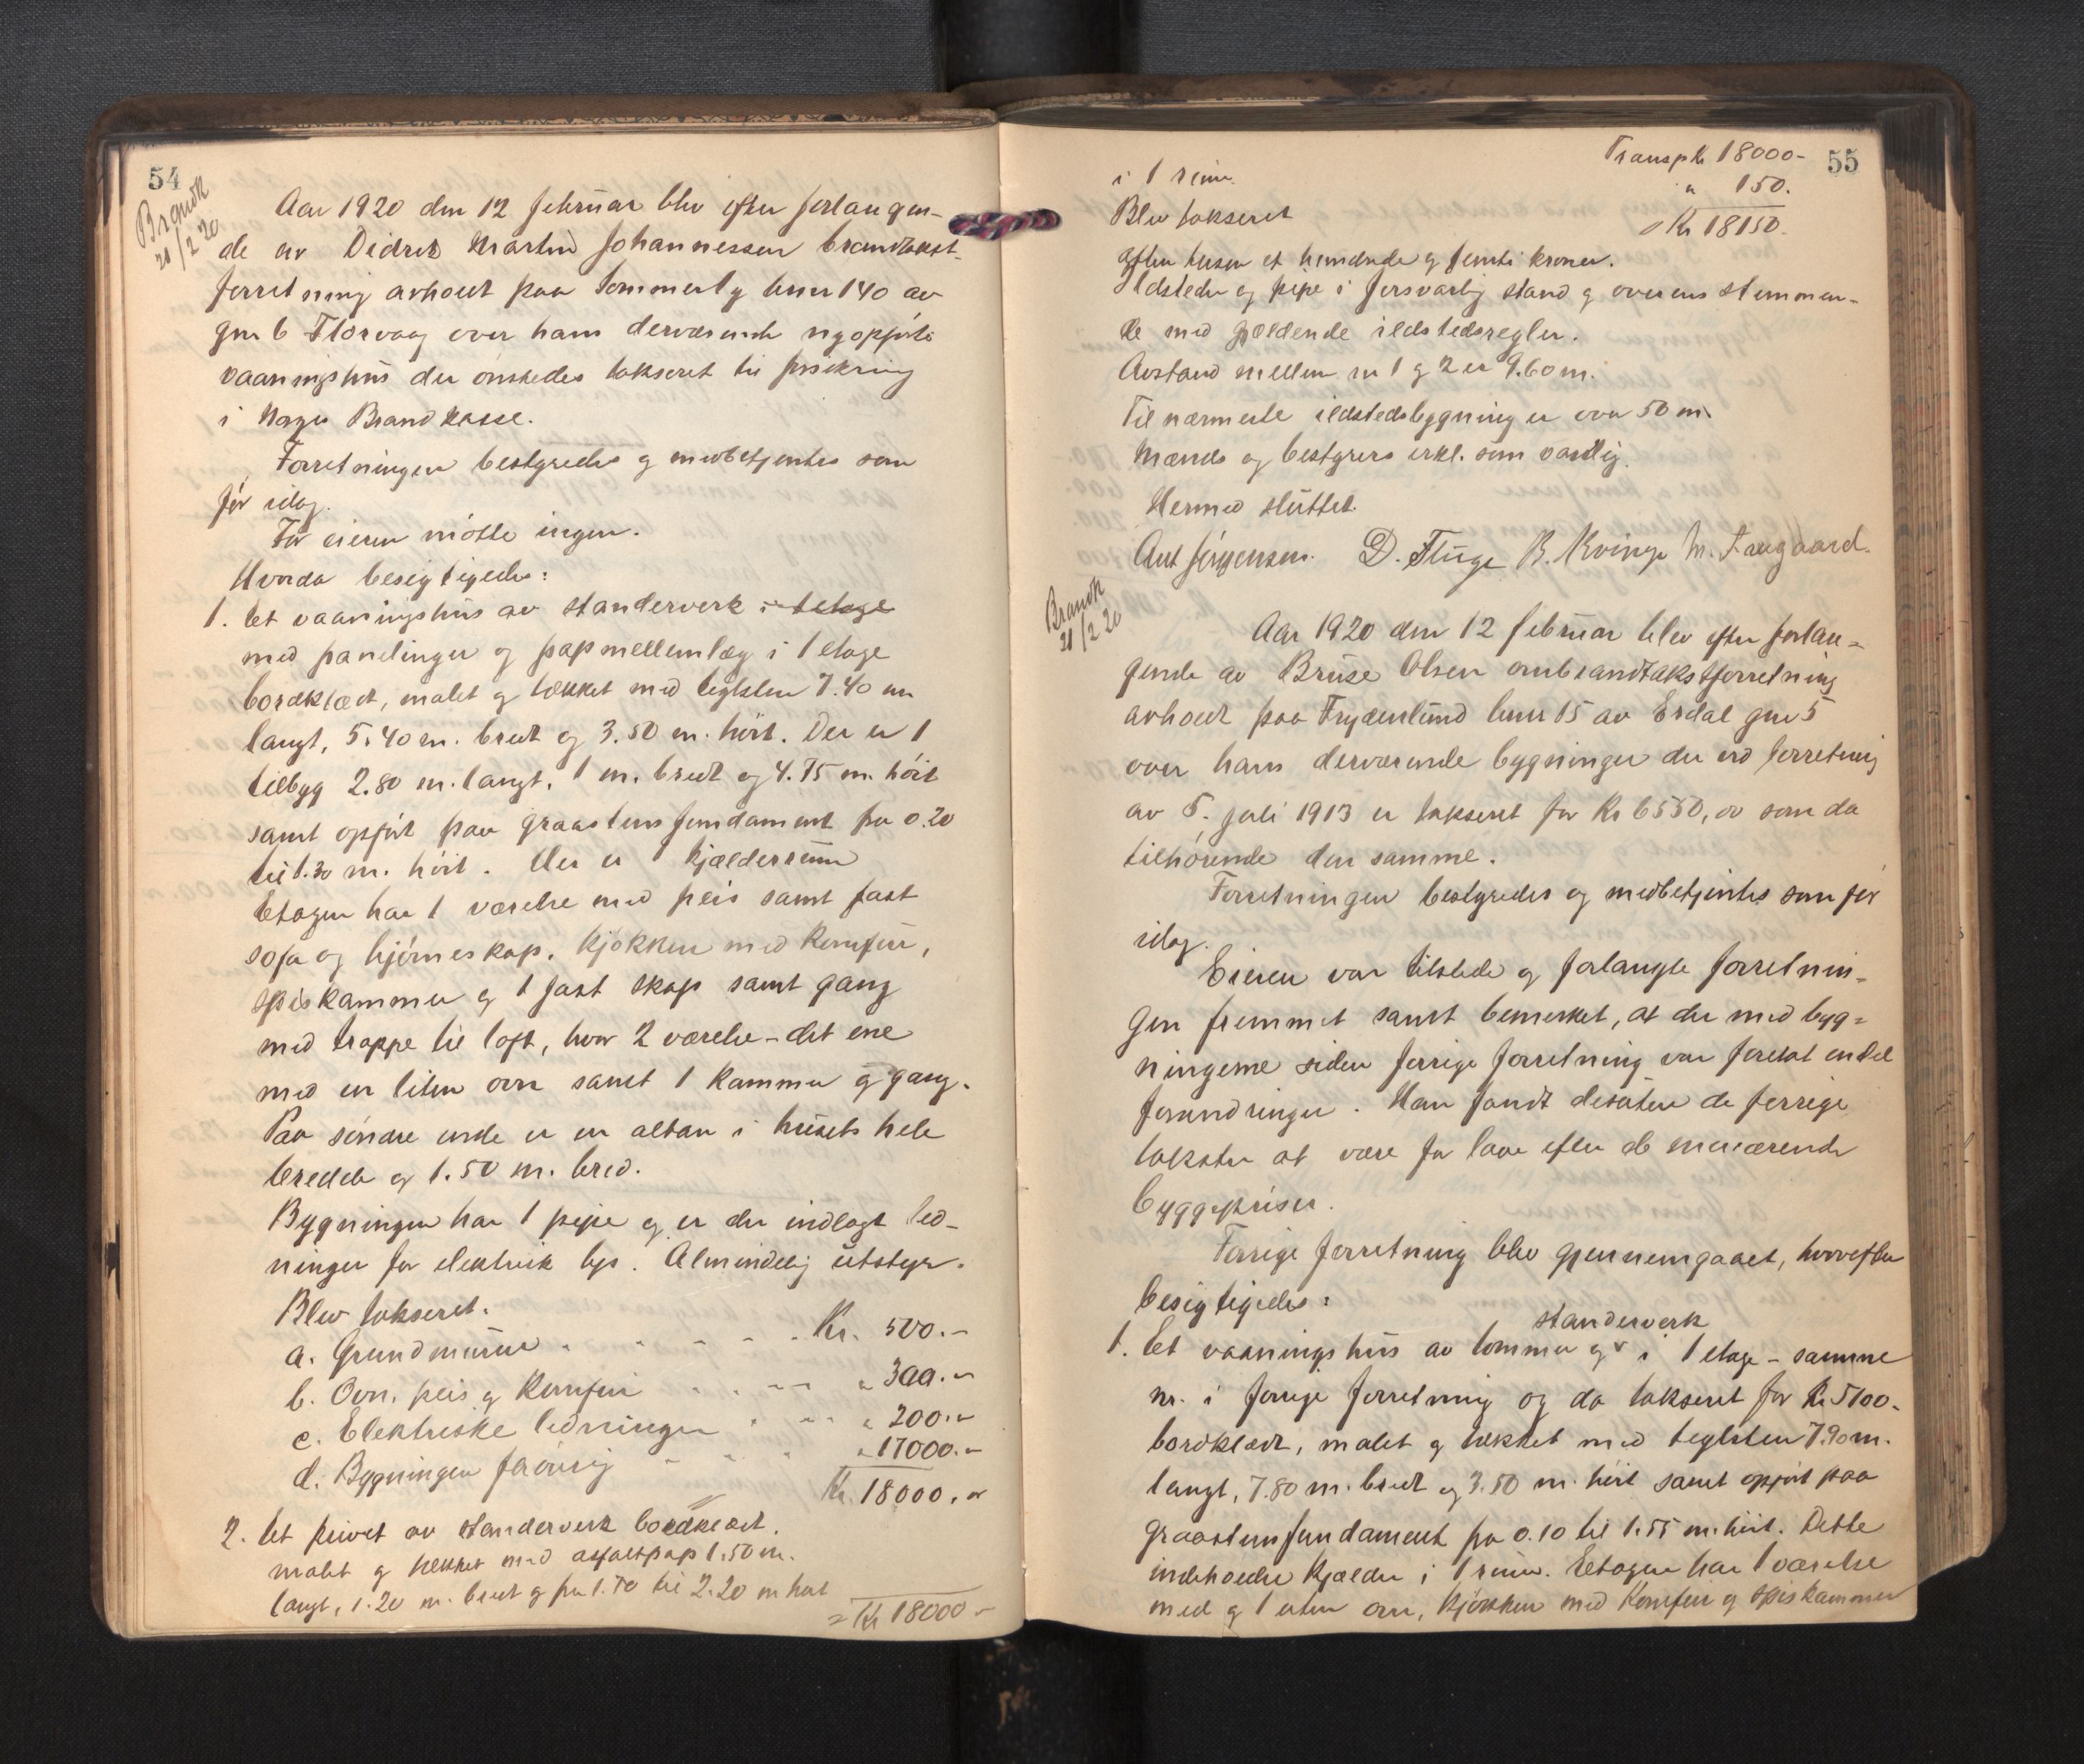 54
Brandk
21/2 20
Aar 1920 den 12 februar blev efter forlangen-
de av Didrik Martin Johannessen brandtakst-
forretning avholdt paa Sommerly brnr 140 av
gnr 6 Florvaag over hans derværende nyopførte
vaaningshus der ønskedes takseret til forsikring
i Norges Brandkasse.
Forretningen bestyredes og medbetjentes som
før idag.
For eieren møtte ingen.
Hvorda besigtigedes:
1. Et vaaningshus av standerverk i etage
med panelinger og papmellemlæg i 1 etage
bordklædt, malet og tækket med teglsten 7.40 m
langt, 5.40 m. bredt og 3.50 m. høit. Der er 1
tilbyg 2.80 m. langt, 1 m. bredt og 4.75 m. høit
samt opført paa graastensfundament fra 0.20
til 1.30 m. høit. Her er 1 kjælderrum
Etagen har 1 værelse med peis samt fast
sofa og hjørneskap, kjøkken med komfur,
spiskammer og 1 fast skap samt gang
med trappe til loft, hvor 2 værelse - det ene
med en liten ovn samt 1 kammer og gang.
Paa søndre ende er en altan i husets hele
bredde og 1.50 m. bred.
Bygningen har 1 pipe og er der indlagt led-
ninger for elektrisk lys. Almindelig utstyr.
Blev takseret:
a. Grundmuren Kr. 500.-
b. Ovn, peis og komfur " 300.-
c. Elektriske ledninger " 200.-
d. Bygningen forøvrig " 17000.-
Kr. 18000.-
2. Et privet av standerverk bordklædt,
malet og tækket med asfaltpap 1.50 m.
langt, 1.20 m. bredt og fra 1.70 til 2.20 m høit
= Kr 18000 -
55
Transp Kr 18000-
i 1 rum.
" 150.
Blev takseret
Kr 18150.
atten tusen et hundrede og femti kroner.
Ildsteder og pipe i forsvarlig stand og overensstemmen-
de med gjældende ildstedsregler.
Avstand mellem nr 1 og 2 er 9.60 m.
Til nærmeste ildstedsbygning er over 50 m.
Mænds og bestyrers erkl. som vanlig.
Hermed sluttet.
Ant Jørgensen. D. Fluge B. Kvinge M. Aaugaard.
Brandk
21/2 20
Aar 1920 den 12 februar blev efter forlan-
gende av Bruse Olsen ombrandtakstforretning
avholdt paa Frydenlund brnr 15 av Erdal gnr 5
over hans derværende bygninger der ved forretning
av 5. juli 1913 er takseret for Kr 6550,00 som da
tilhørende den samme.
Forretningen bestyredes og medbetjentes som før
idag.
Eieren var tilstede og forlangte forretnin-
gen fremmet samt bemerket, at der med byg-
ningerne siden forrige forretning var foretat endel
forandringer. Han fandt desuten de forrige
takster at være for lave efter de nuværende
byggepriser.
Forrige forretning blev gjennemgaaet, hvorefter
besigtigedes:
standerverk
1. Et vaaningshus av tømmer og i 1 etage - samme
nr. i forrige forretning og da takseret for Kr 5100-
bordklædt, malet og tækket med teglsten 7.90 m.
langt, 7.80 m. bredt og 3.50 m. høit samt opført paa
graastensfundament fra 0.10 til 1.55 m. høit. Dette
indeholder kjælder i 1 rum. Etagen har 1 værelse
med og 1 uten ovn, kjøkken med komfur og spiskammer